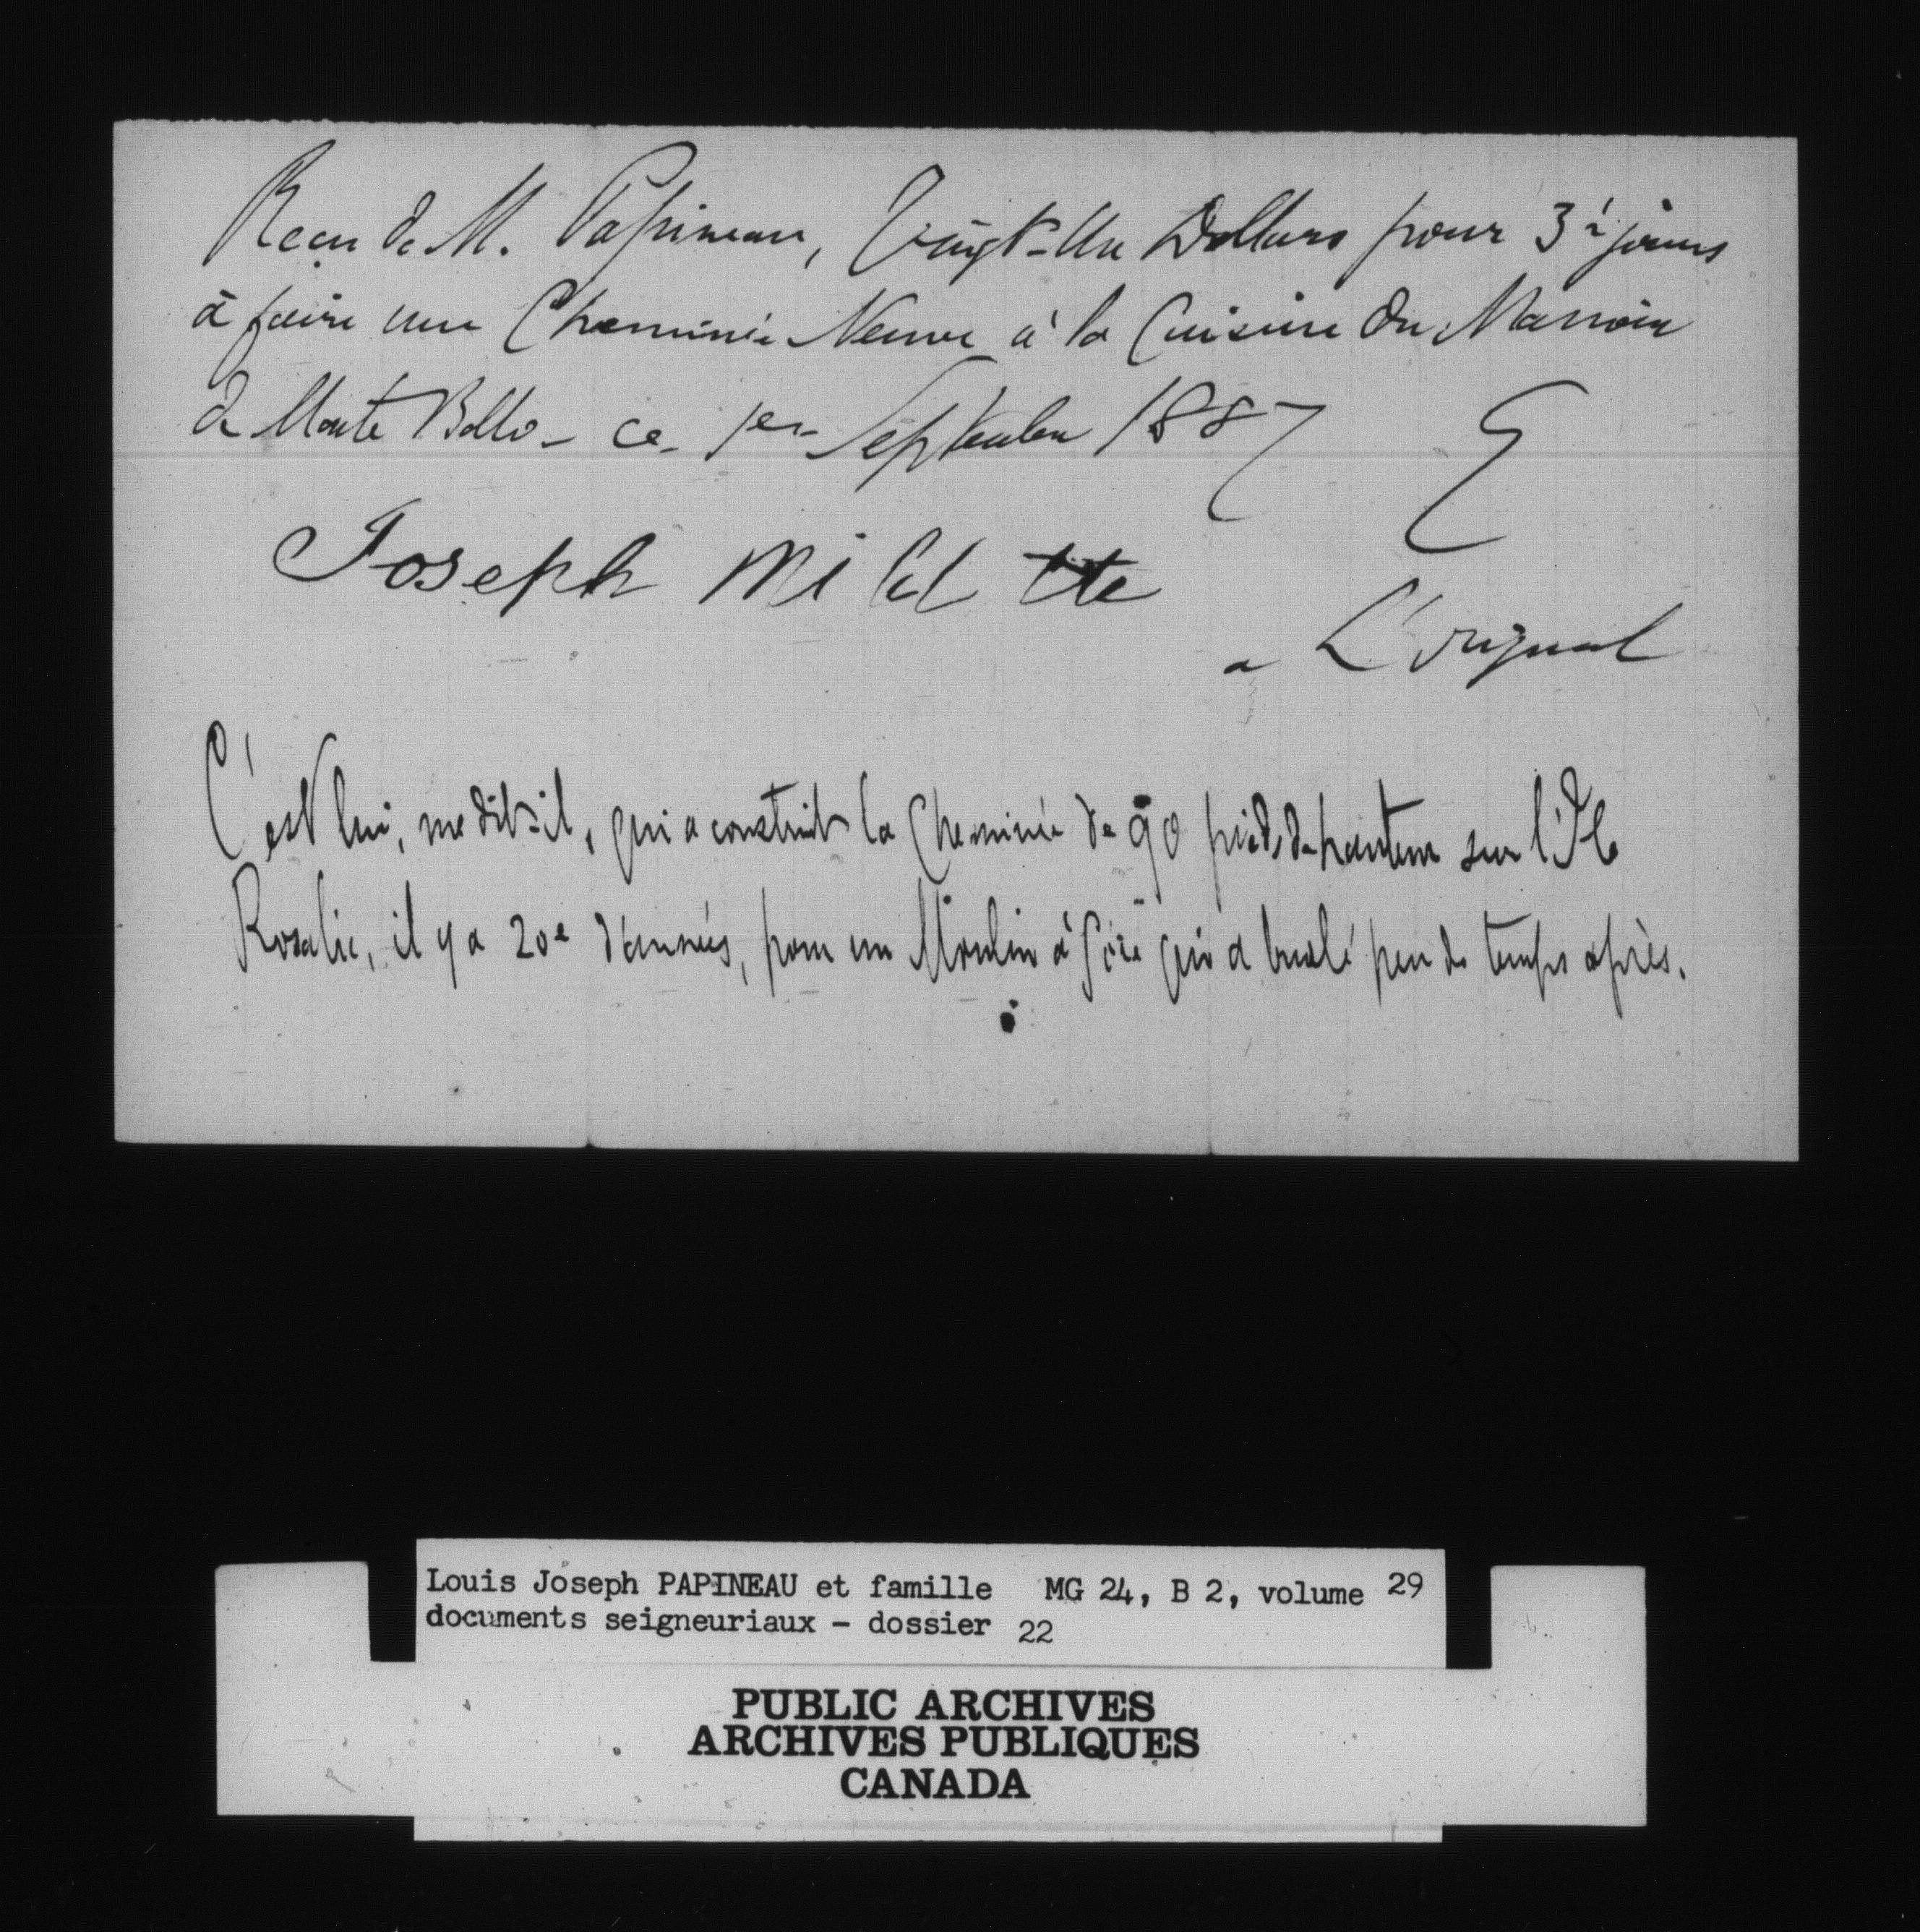 Recu de M. Papineau, Vingt-Un Dollars pour 3 jours
à faire une Cheminée Neuve à la Cuisine du Manoir
de Monte Bello - ce - 1er Septembre 1887
Joseph
a L'orignal
C'est lui, me dit-il, qui a construit la Cheminée de 90 pieds de hauteur sur l'Ile
Rosalie, il y a 20e d'années, pour un Moulin à Scie qui a brulé peu de temps après.
Louis Joseph PAPINEAU et famille MG 24, B 2, volume 29
documents seigneuriaux - dossier 22
PUBLIC ARCHIVES
ARCHIVES PUBLIQUES
CANADA